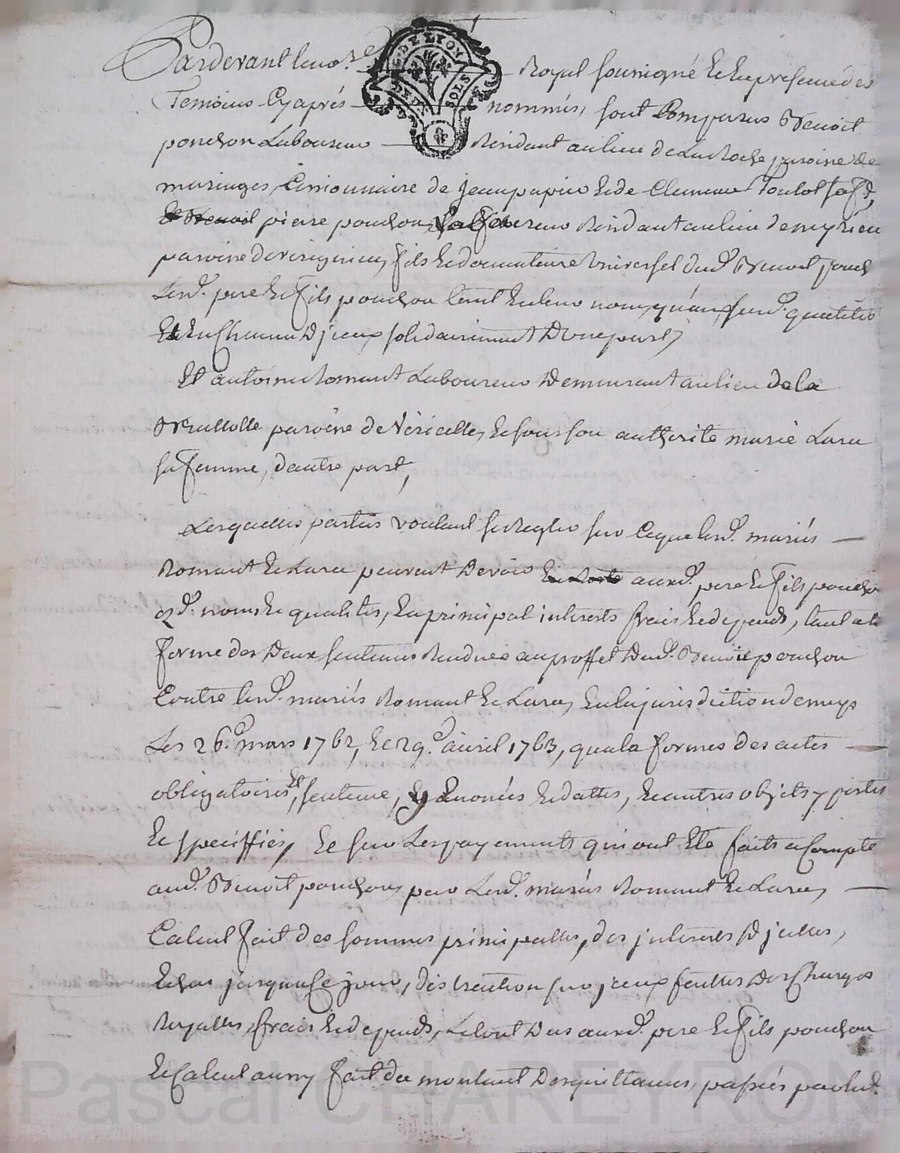 Pardevant le no.re
DE LYON
SOLS
Royal sousigné & en presence des
Temoins cy aprés nommés, sont comparus Benoît
ponchon Laboureur Résidant au lieu de La Roche paroisse de
maringes, Cessionnaire de jean papier & de Clemence Toulot sa f.e,
pierre ponchon Résidant au lieu de
paroisse de fils & donnataire universel dud. Benoît ponch
Lesd. pere & fils ponchon tant en leurs noms, qu'en susd. qualités
Et En Chacun D'jceux solidairement D'une part,
Et antoine Romant Laboureur Demeurant au lieu de la
paroisse de Viricelles, & sous son authorité marie Lara
sa femme, d'autre part,
Lesquelles parties voulant se Regler sur ce que lesd. mariés
Romant & Lara peuvent Devoir auxd. pere & fils ponchon
esd. noms & qualités, En principal interets frais & depends, tant a la
forme des Deux sentences Rendues au proffit Dud. Benoît ponchon
Contre lesd. mariés Romant & Lara, En la jurisdiction de
Les 26.e mars 1762, & 29.e avril 1763, qu'a la formes des actes
obligatoires, et sentence, y Enoncés & dattés, & autres objets y portés
& speciffiés, & sur Les payements qui ont Eté faits a Compte
aud. Benoît ponchon par Lesd. mariés Romant & Lara,
Calcul fait des sommes principalles, des jnterets D'jcelles,
Echus jusqu'a Ce jour, distraction sur jceux faittes Des Charges
Royalles, frais & depends, Le tout Dus auxd. pere & fils ponchon
& Calcul aussy fait du montant Des quittances, passées par led.
Pascal CHAREYRON